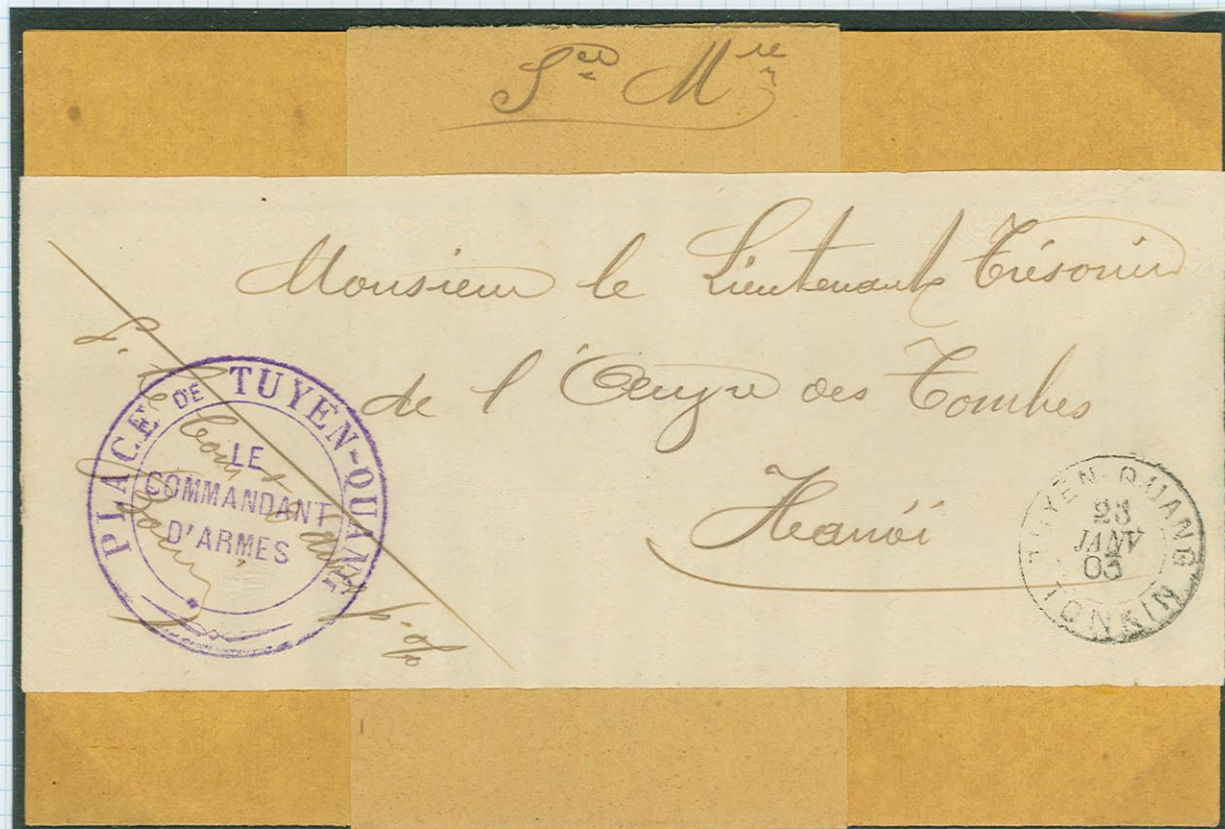 Sce Mre
Monsieur le Lieutenant Trésorier
de l'Œuvre des Tombes
Hanöi
PLACE DE TUYEN-QUANG
LE
COMMANDANT
D'ARMES
TUYEN-QUANG
JANV
03
TONKIN